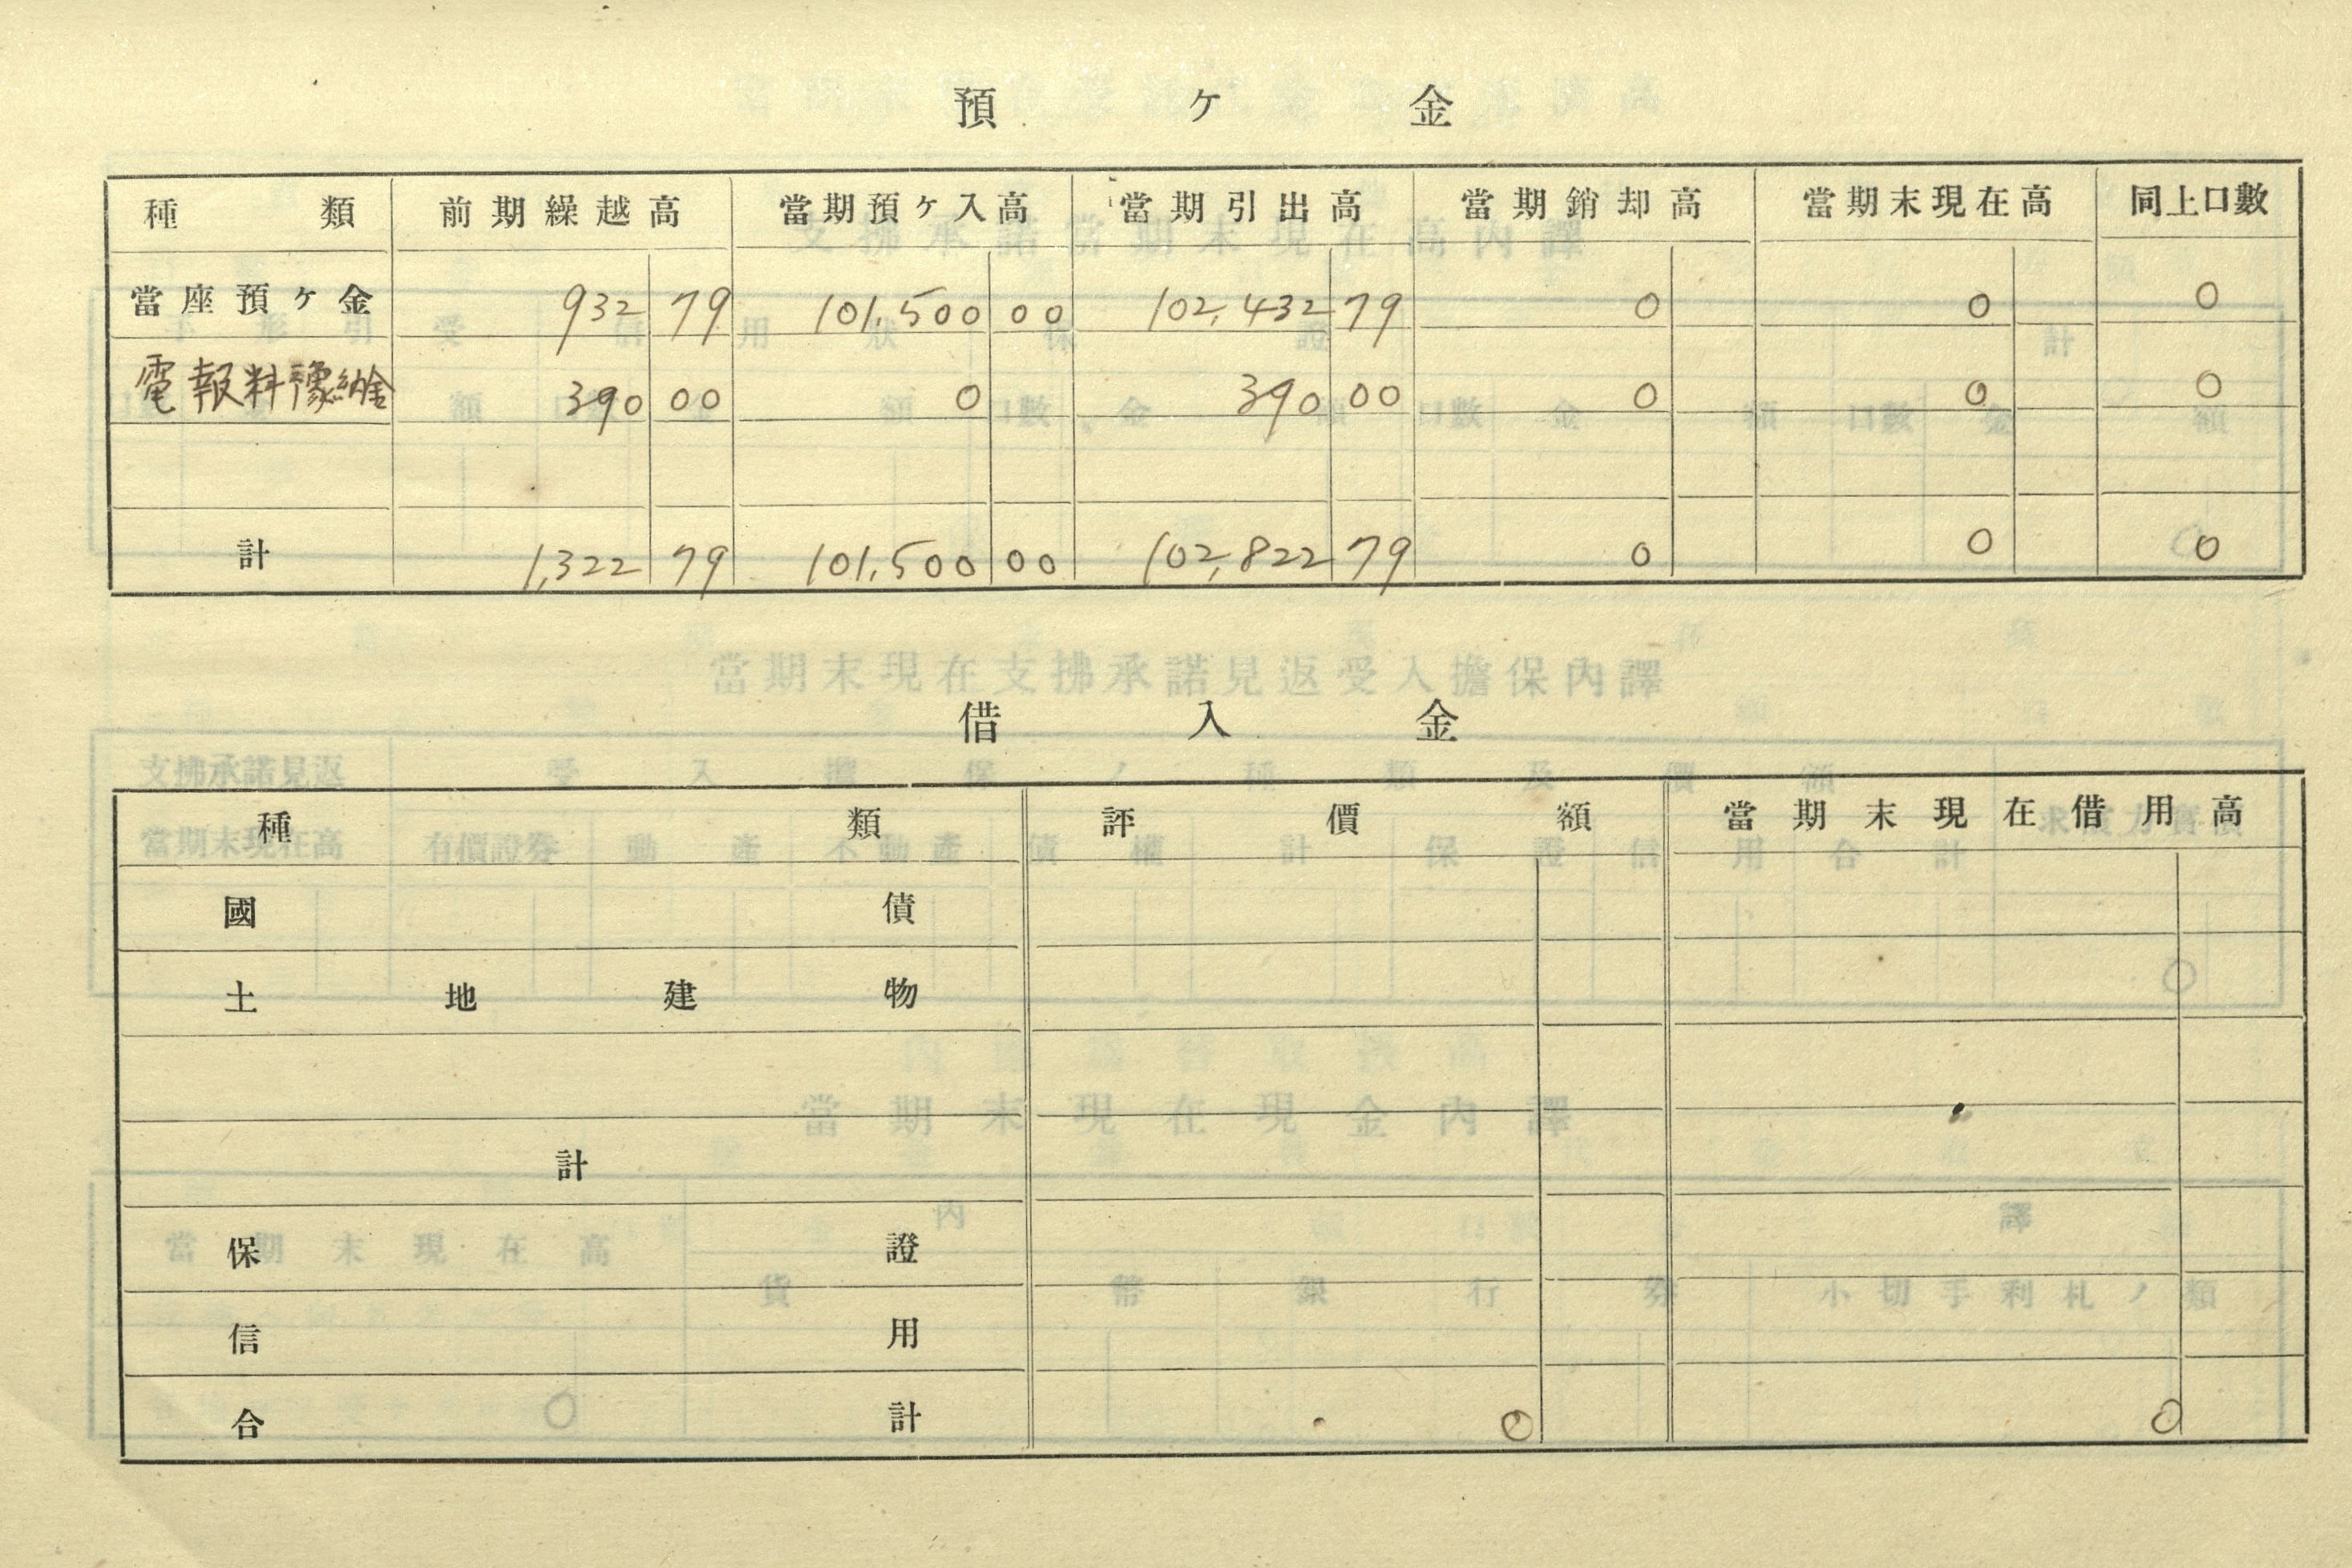 預ケ金
種類 前期繰越高 當期預ケ入高 當期引出高 當期銷却高 當期末現在高 同上口數
當座預ケ金 932 79 101,500 00 102,432 79 0 0 0
電報料豫納金 390 00 0 390 00 0 0 0
計 1,322 79 101,500 00 102,822 79 0 0 0
當期末現在支拂承諾見返受入擔保內譯
借入金
種類 評價額 當期末現在借用高
國債
土地建物
當期末現在現金內譯
計
保證
信用
合計 0 0